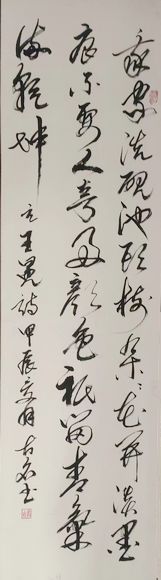 我家洗砚池头树朵〻花开淡墨
痕不要人夸好颜色祇留清气
满乾坤 元王冕诗 甲辰夏月